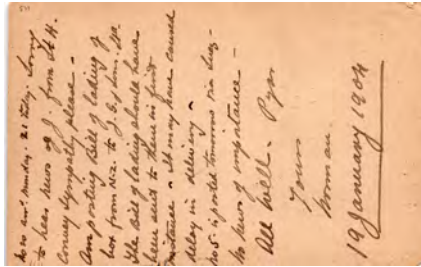 to hear news of J. from St H.
Convey sympathy please -
Am posting Bill of lading of
box from
The Bill of lading should have
been sent to them in first
instance - It may have caused
delay in delivery -
No 5. is posted tomorrow via
No news of importance -
All well.
Yours
Norman.
19 January 1904